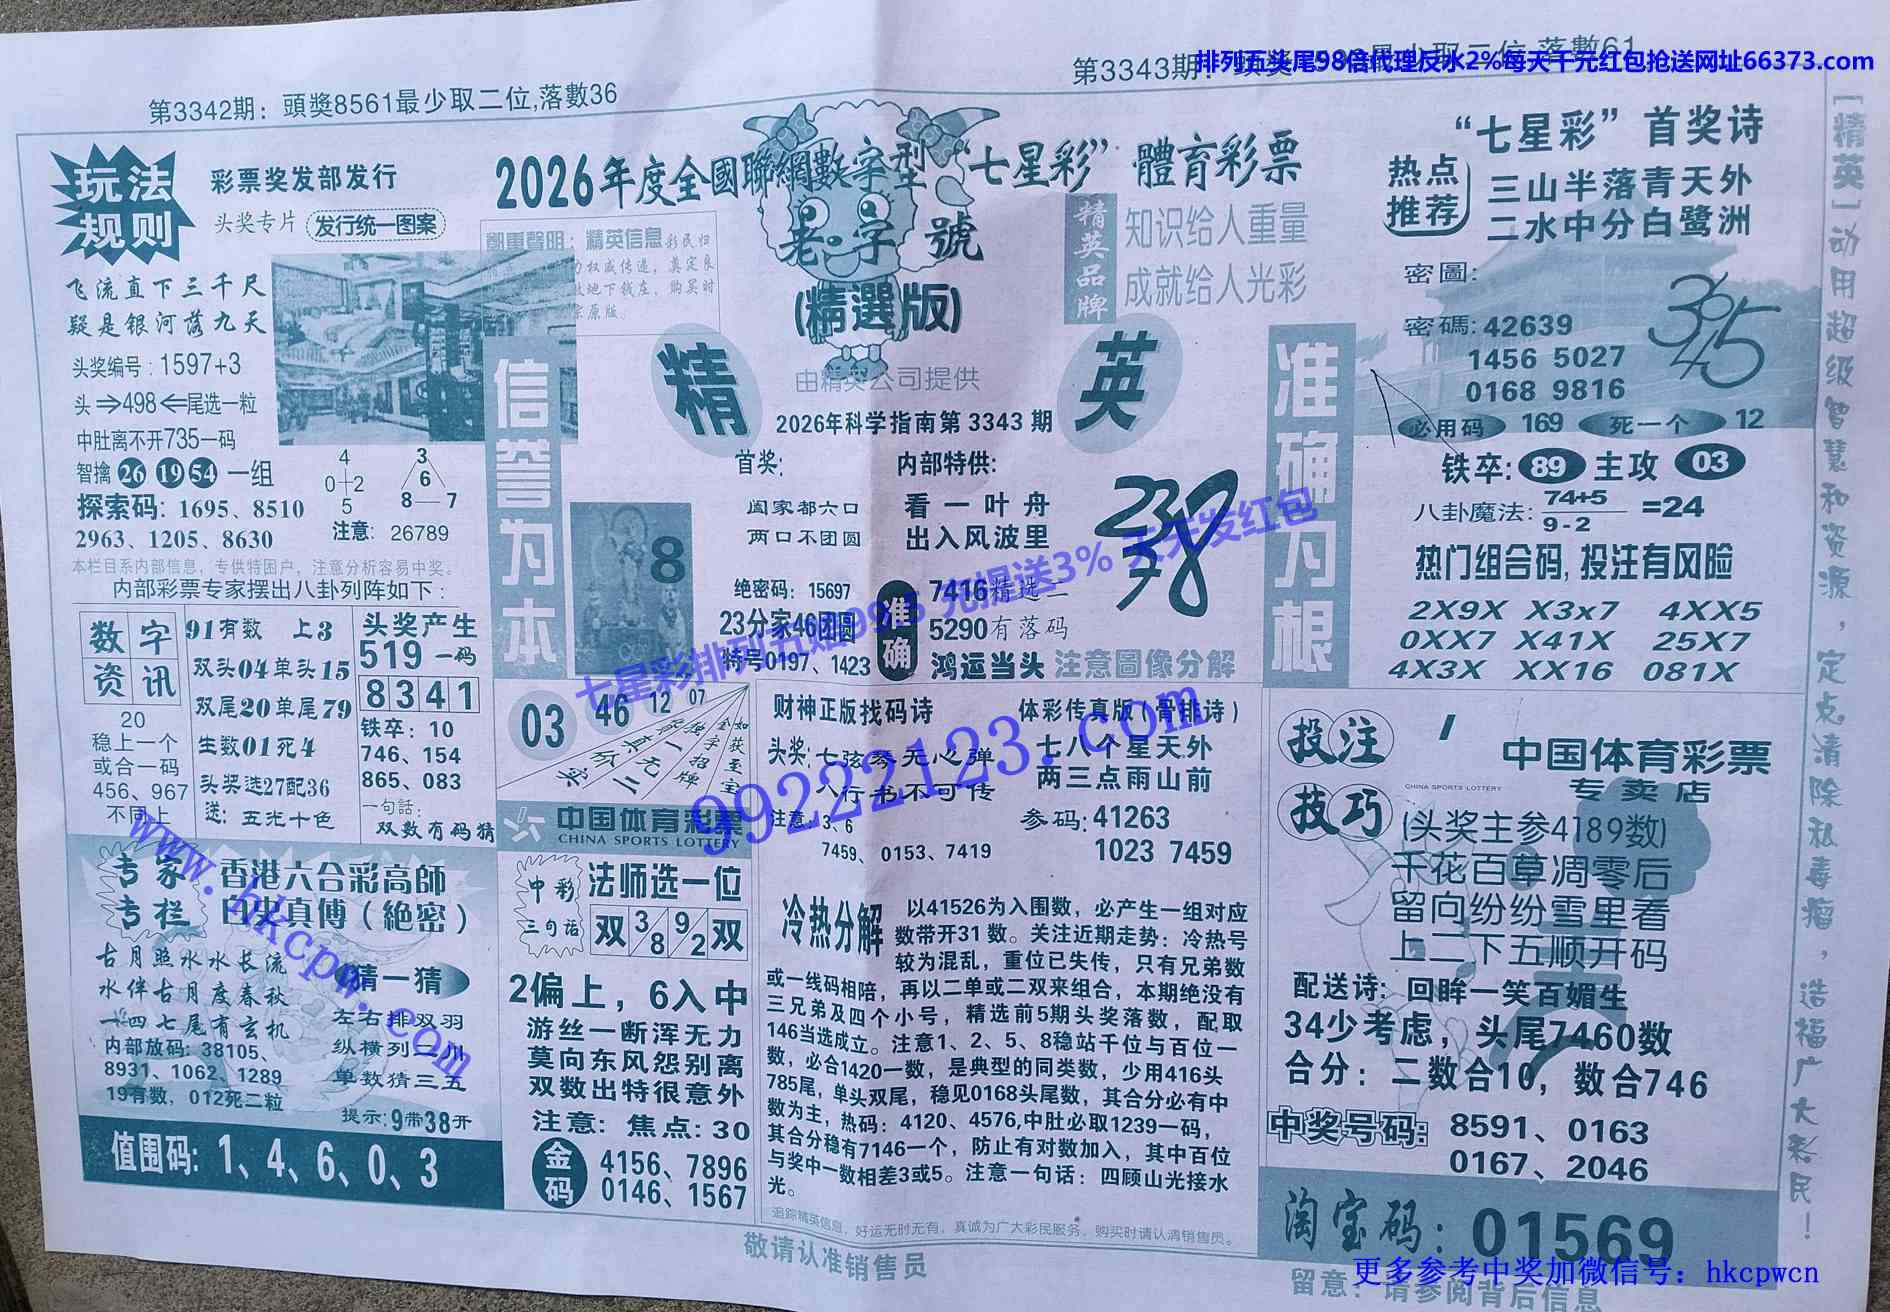 排列五头尾98倍代理反水2%每天千元红包抢送网址66373.com
第3342期：頭獎8561最少取二位,落數36
第3343期：
落數61
玩法
规则
彩票奖发部发行
头奖专片 发行统一图案
飞流直下三千尺
疑是银河落九天
头奖编号：1597+3
头⇒498⇐尾选一粒
中肚离不开735一码
智擒 26 19 54 一组
4
0 2
5
3
6
8 7
探索码：1695、8510
2963、1205、8630
注意：26789
本栏目系内部信息，专供特困户，注意分析容易中奖。
内部彩票专家摆出八卦列阵如下：
数字
资讯
20
稳上一个
或合一码
456、967
不同上
91有数 上3
双头04单头15
双尾20单尾79
生数01死4
头奖选27配36
送：五光十色
头奖产生
519一码
8341
铁卒：10
746、154
865、083
一句話：
双数有码猜
专家
专栏
香港六合彩高師
白史真傅（絶密）
古月照水水长流
水伴古月度春秋
一四七尾有玄机
内部放码：38105、
8931、1062、1289
19有数，012死二粒
猜一猜
左右排双羽
纵横列二川
单数猜三五
提示：9带38开
值围码：1、4、6、0、3
2026年度全國聯網數字型“七星彩”體育彩票
鄭重聲明：精英信息
老字號
(精選版)
由精英公司提供
精英品牌
知识给人重量
成就给人光彩
精英
2026年科学指南第3343期
信誉为本
准确为根
8
首奖：
阖家都六口
两口不团圆
绝密码：15697
23分家46团圆
特号0197、1423
内部特供：
看一叶舟
出入风波里
准确
7416精选二
5290有落码
鸿运当头 注意圖像分解
238
378
七星彩排列五赔99.5 充提送3% 天天发红包
03
46
12
07
中国体育彩票
CHINA SPORTS LOTTERY
中彩
三句话
法师选一位
双 3/8 9/2 双
2偏上，6入中
游丝一断浑无力
莫向东风怨别离
双数出特很意外
注意：焦点：30
金码
4156、7896
0146、1567
财神正版找码诗
头奖：七弦琴无心弹
八行书不可传
注意：3、6
7459、0153、7419
体彩传真版（骨排诗）
七八个星天外
两三点雨山前
参码：41263
1023 7459
99222123.com
www.hkcpw.com
冷热分解
以41526为入围数，必产生一组对应
数带开31数。关注近期走势：冷热号
较为混乱，重位已失传，只有兄弟数
或一线码相陪，再以二单或二双来组合，本期绝没有
三兄弟及四个小号，精选前5期头奖落数，配取
146当选成立。注意1、2、5、8稳站千位与百位一
数，必合1420一数，是典型的同类数，少用416头
785尾，单头双尾，稳见0168头尾数，其合分必有中
数为主，热码：4120、4576,中肚必取1239一码，
其合分稳有7146一个，防止有对数加入，其中百位
与奖中一数相差3或5。注意一句话：四顾山光接水
光。
追踪精英信息，好运无时无有，真诚为广大彩民服务，购买时请认清销售员。
敬请认准销售员
“七星彩”首奖诗
热点
推荐
三山半落青天外
二水中分白鹭洲
密圖：
密碼：42639
1456 5027
0168 9816
必用码 169 死一个 12
铁卒：89 主攻 03
八卦魔法：74+5/9-2=24
热门组合码,投注有风险
2X9X X3x7 4XX5
0XX7 X41X 25X7
4X3X XX16 081X
投注
技巧
中国体育彩票
CHINA SPORTS LOTTERY
专卖店
(头奖主参4189数)
千花百草凋零后
留向纷纷雪里看
上二下五顺开码
配送诗：回眸一笑百媚生
34少考虑，头尾7460数
合分：二数合10，数合746
中奖号码：8591、0163
0167、2046
淘宝码：01569
更多参考中奖加微信号：hkcpwcn
留意：请参阅背后信息
［精英］动用超级智慧和资源，定点清除私毒瘤，造福广大彩民！